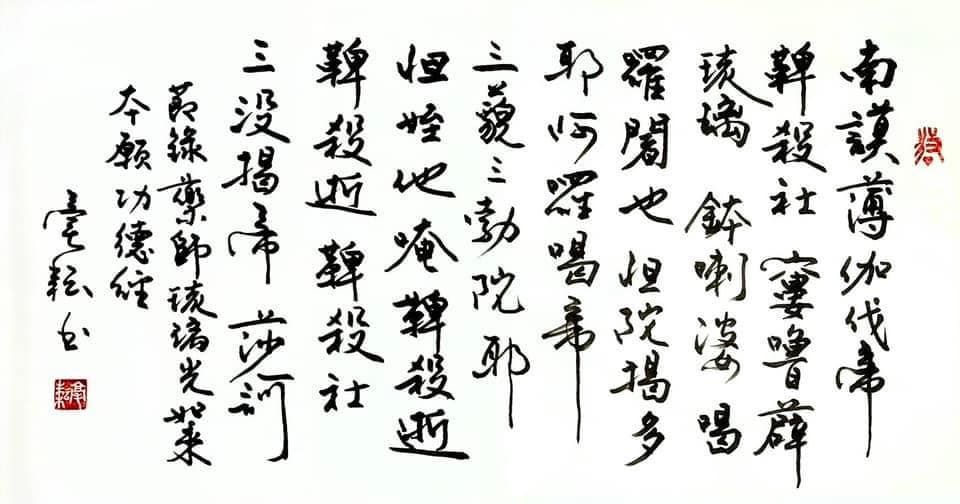 南謨薄伽伐帝
鞞殺社 窶嚕薜
琉璃 鉢喇婆 喝
羅闍也 怛陀揭多
耶阿羅喝帝
三藐三勃陀耶
怛姪他唵鞞殺逝
鞞殺逝 鞞殺社
三没揭帝 莎訶
節錄藥師琉璃光如來
本願功德經
耘书